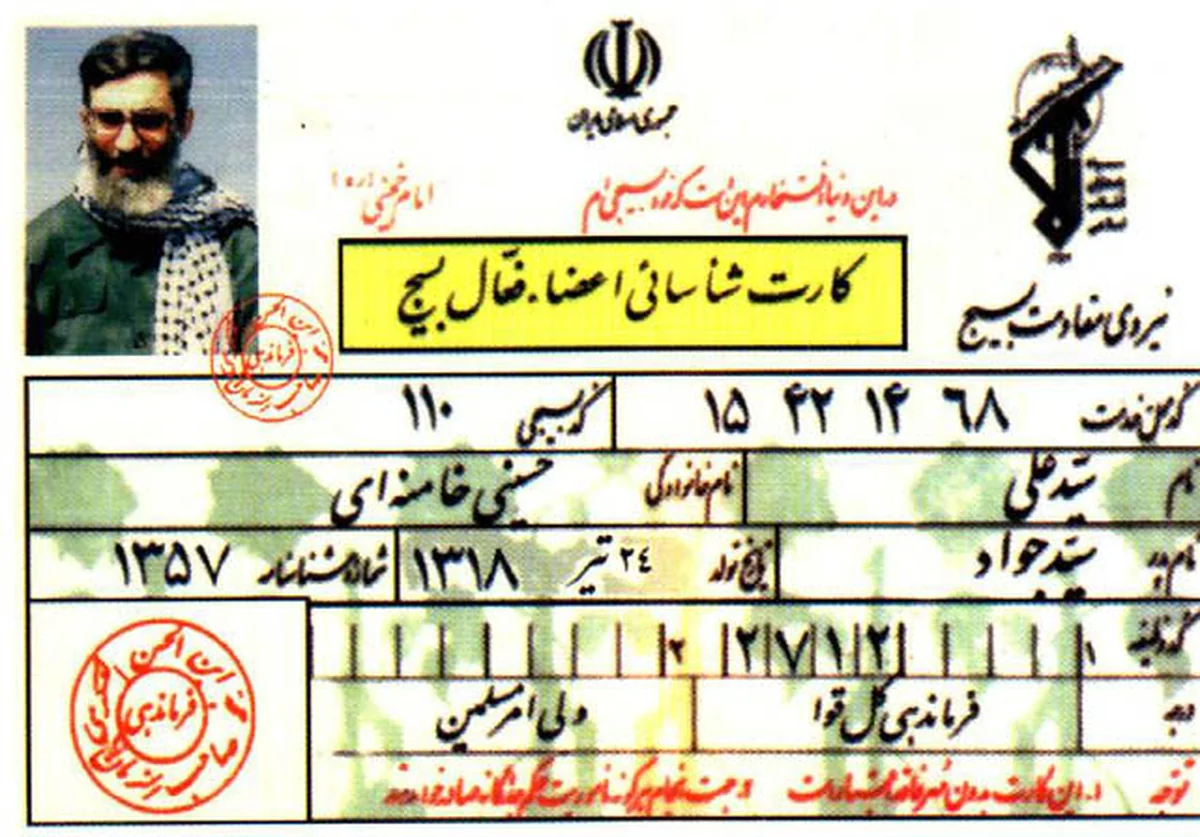 جمهوری اسلامی ایران
در این دنیا افتخارم این است که خود بسیجی‌ام
امام خمینی (ره)
کارت شناسائی اعضاء فعّال بسیج
نیروی مقاومت بسیج
۶۸ ۱۴ ۴۲ ۱۵
کد بسیجی ۱۱۰
نام سیّد علی
نام خانوادگی حسینی خامنه‌ای
نام پدر سیّد جواد
تاریخ تولد ۲۴ تیر ۱۳۱۸
شماره شناسنامه ۱۳۵۷
۱ ۲ ۷ ۱ ۲ ۲
درجه فرماندهی کل قوا
ولی امر مسلمین
توجه ۱. این کارت بدون مهر فاقد اعتبار است
فرماندهی
فرماندهی